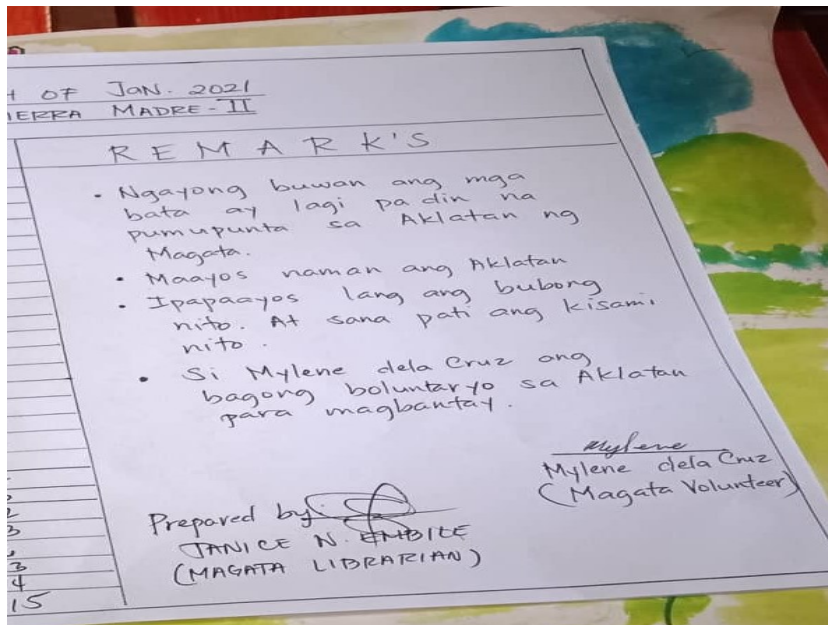 OF JAN. 2021
IERRA MADRE-II
REMARK'S
• Ngayong buwan ang mga
bata ay lagi pa din na
pumupunta sa Aklatan ng
Magata.
• Maayos naman ang Aklatan
• Ipapaayos lang ang bubong
nito. At sana pati ang kisami
nito.
• Si Mylene dela Cruz ang
bagong boluntaryo sa Aklatan
para magbantay.
Mylene
Mylene dela Cruz
(Magata Volunteer)
Prepared by:
JANICE N. EMBILE
(MAGATA LIBRARIAN)
3
3
4
15